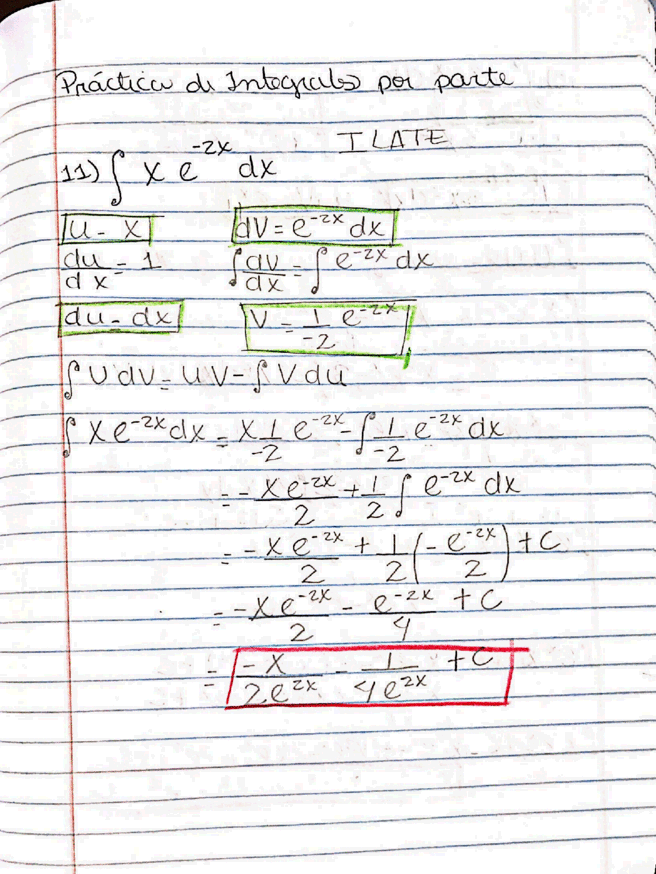 Práctica de Integrales por parte
ILATE
11) ∫ x e^{-2x} dx
u = x    dV = e^{-2x} dx
du/dx = 1    ∫ dv/dx = ∫ e^{-2x} dx
du = dx    V = 1/-2 e^{-2x}
∫ U dV = UV - ∫ V du
∫ X e^{-2x} dx = X 1/-2 e^{-2x} - ∫ 1/-2 e^{-2x} dx
= - X e^{-2x}/2 + 1/2 ∫ e^{-2x} dx
= - X e^{-2x}/2 + 1/2 (- e^{-2x}/2) + C
= - X e^{-2x}/2 - e^{-2x}/4 + C
= -X/2e^{2x} - 1/4e^{2x} + C